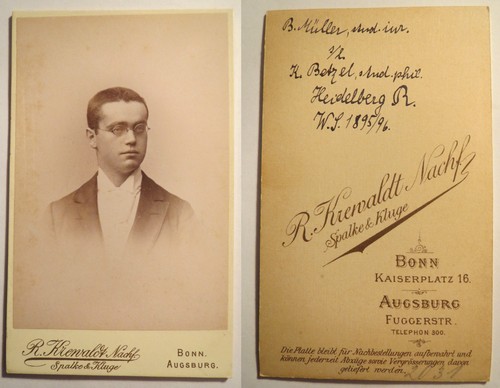 R. Krewaldt Nachf.
Spalke & Kluge
BONN.
AUGSBURG.
B. Müller, stud. iur.
s/l.
K. Betzel, stud. phil.
Heidelberg R.
W.S. 1895/96.
R. Krewaldt Nachf.
Spalke & Kluge
BONN
KAISERPLATZ 16.
AUGSBURG
FUGGERSTR.
TELEPHON 300.
Die Platte bleibt für Nachbestellungen aufbewahrt und
können jederzeit Abzüge sowie Vergrösserungen davon
geliefert werden.